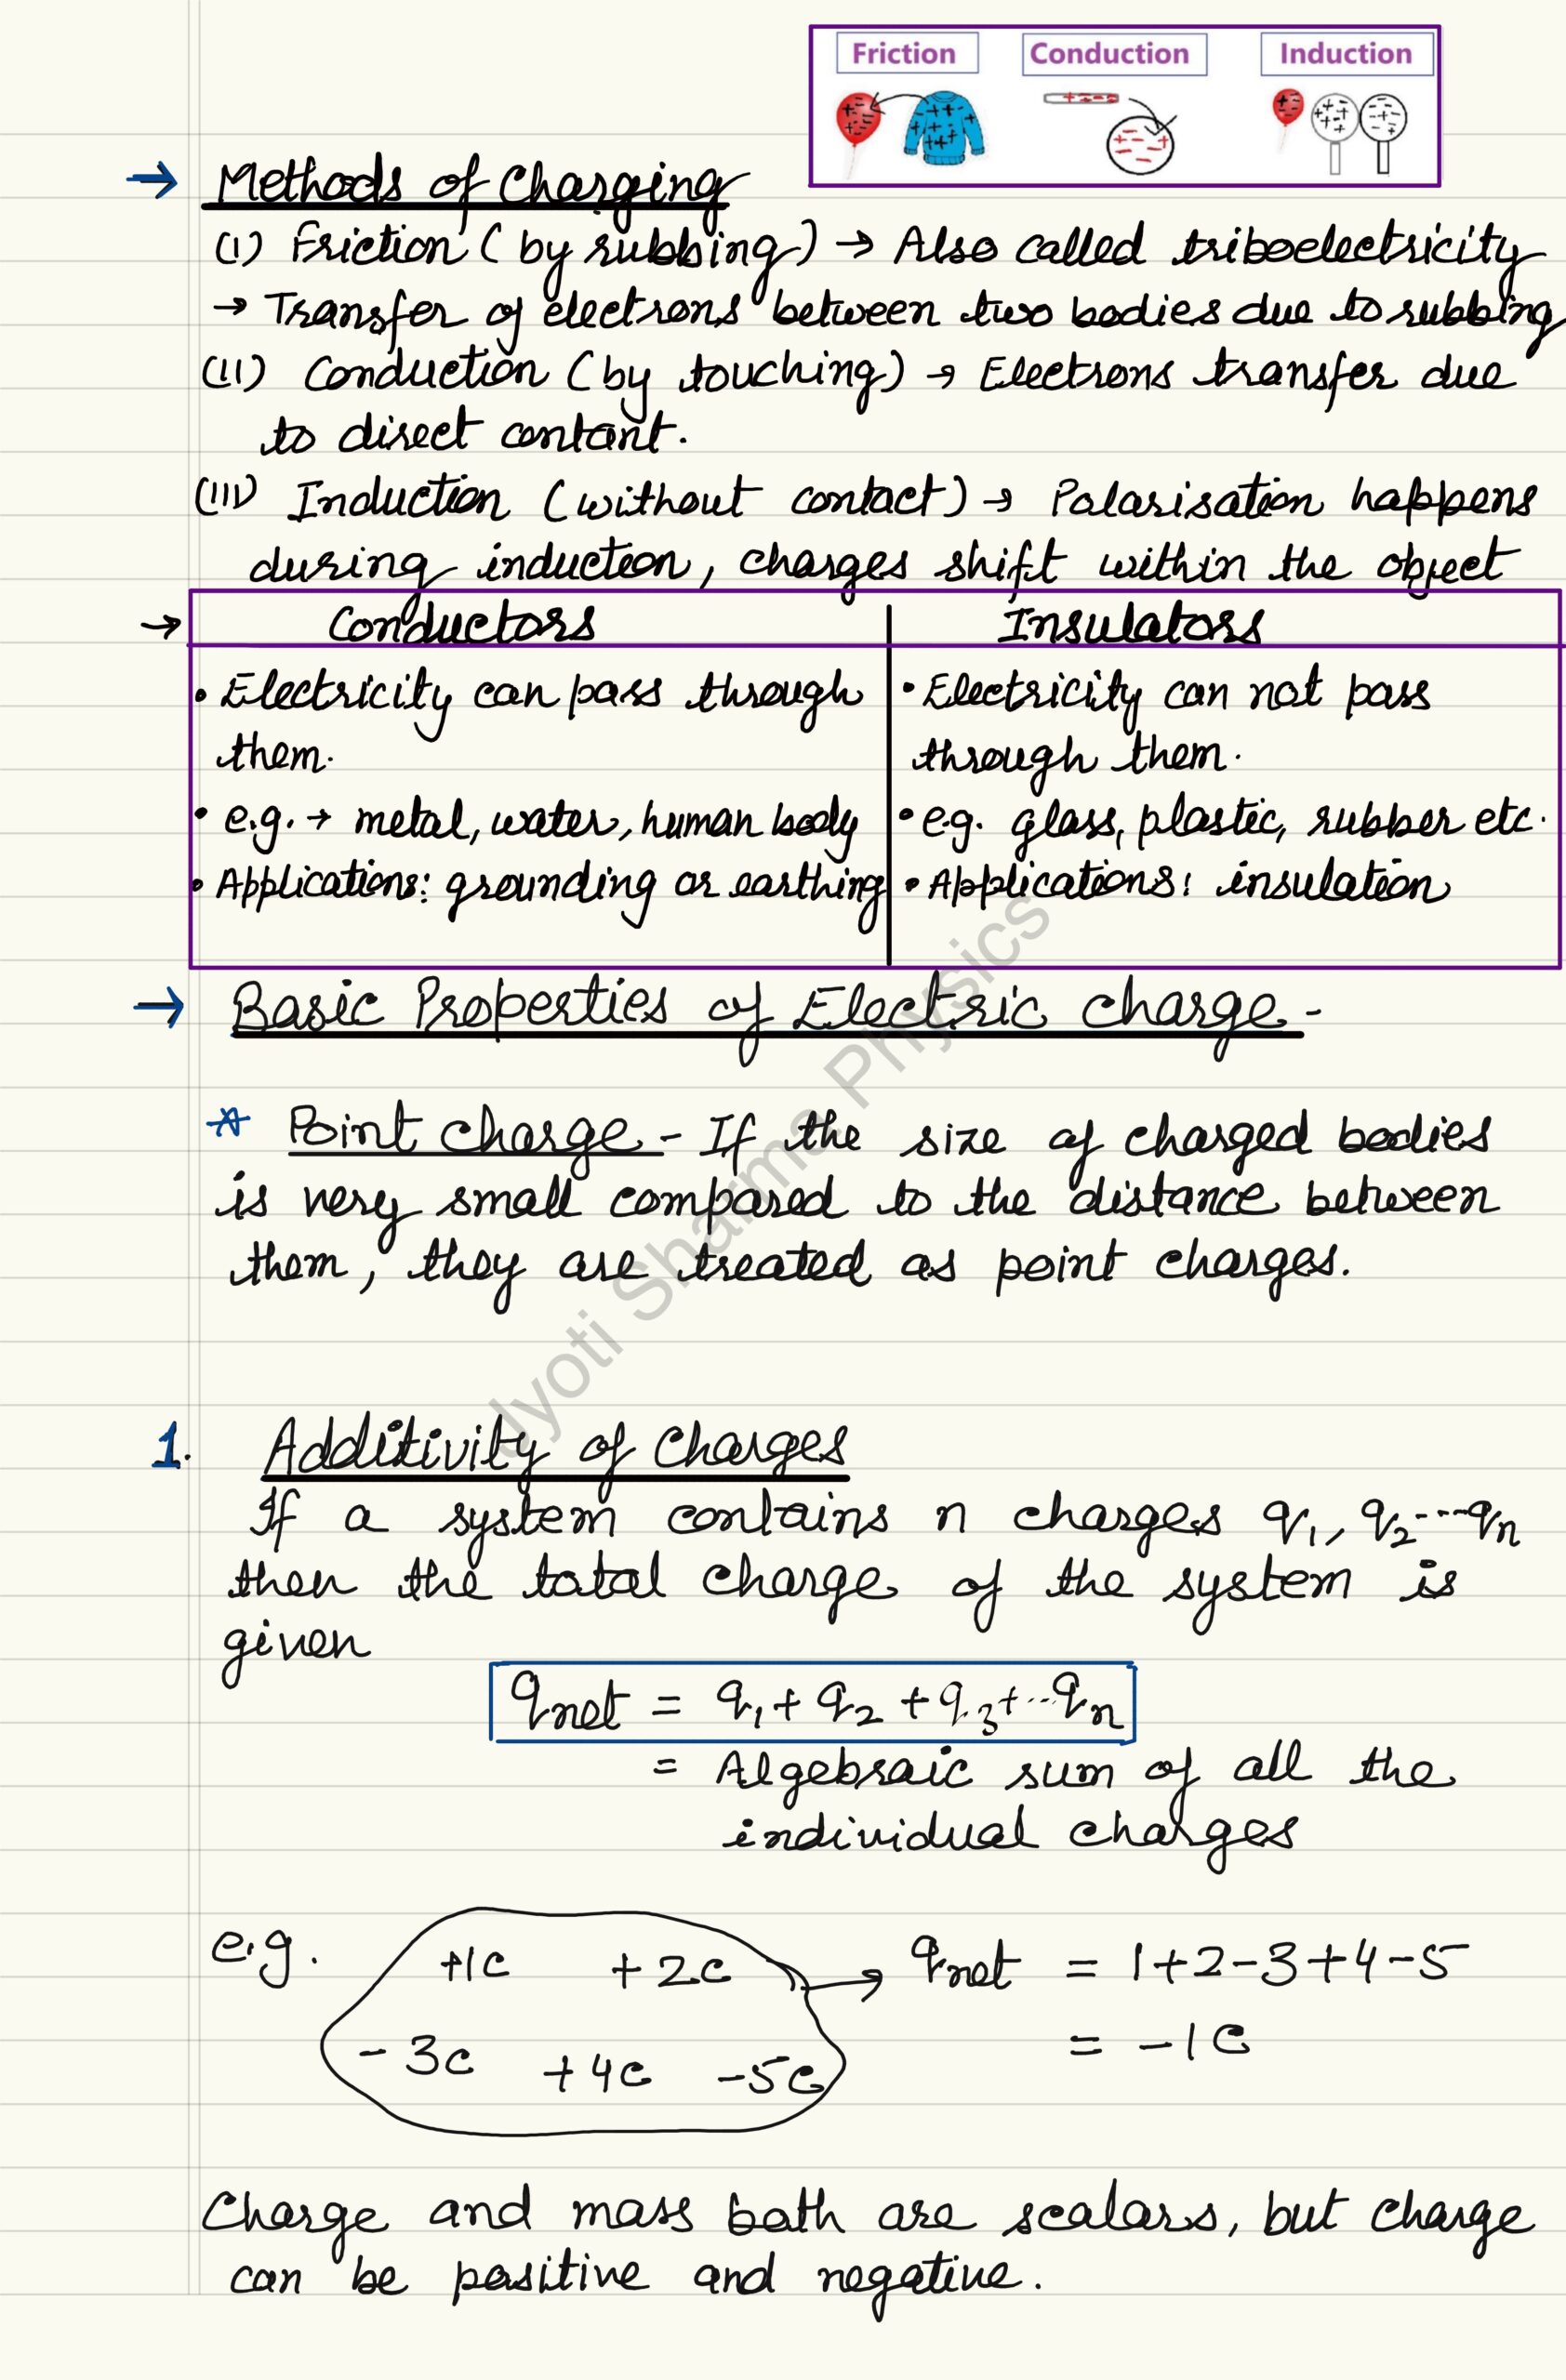 Friction Conduction Induction
→ Methods of Charging
(I) Friction (by rubbing) → Also called triboelectricity
→ Transfer of electrons between two bodies due to rubbing
(II) Conduction (by touching) → Electrons transfer due
to direct contant.
(III) Induction (without contact) → Polarisation happens
during induction, charges shift within the object
→ Conductors
• Electricity can pass through
them.
• e.g. → metal, water, human body
• Applications: grounding or earthing
Insulators
• Electricity can not pass
through them.
• e.g. glass, plastic, rubber etc.
• Applications: insulation
→ Basic Properties of Electric charge -
* Point charge - If the size of charged bodies
is very small compared to the distance between
them, they are treated as point charges.
1. Additivity of Charges
If a system contains n charges q₁, q₂---qₙ
then the total charge of the system is
given
qnet = q₁ + q₂ + q₃ + --- qₙ
= Algebraic sum of all the
individual charges
e.g. +1C +2C → qnet = 1+2-3+4-5
-3C +4C -5C = -1C
Charge and mass both are scalars, but charge
can be positive and negative.
Jyoti Sharma Physics